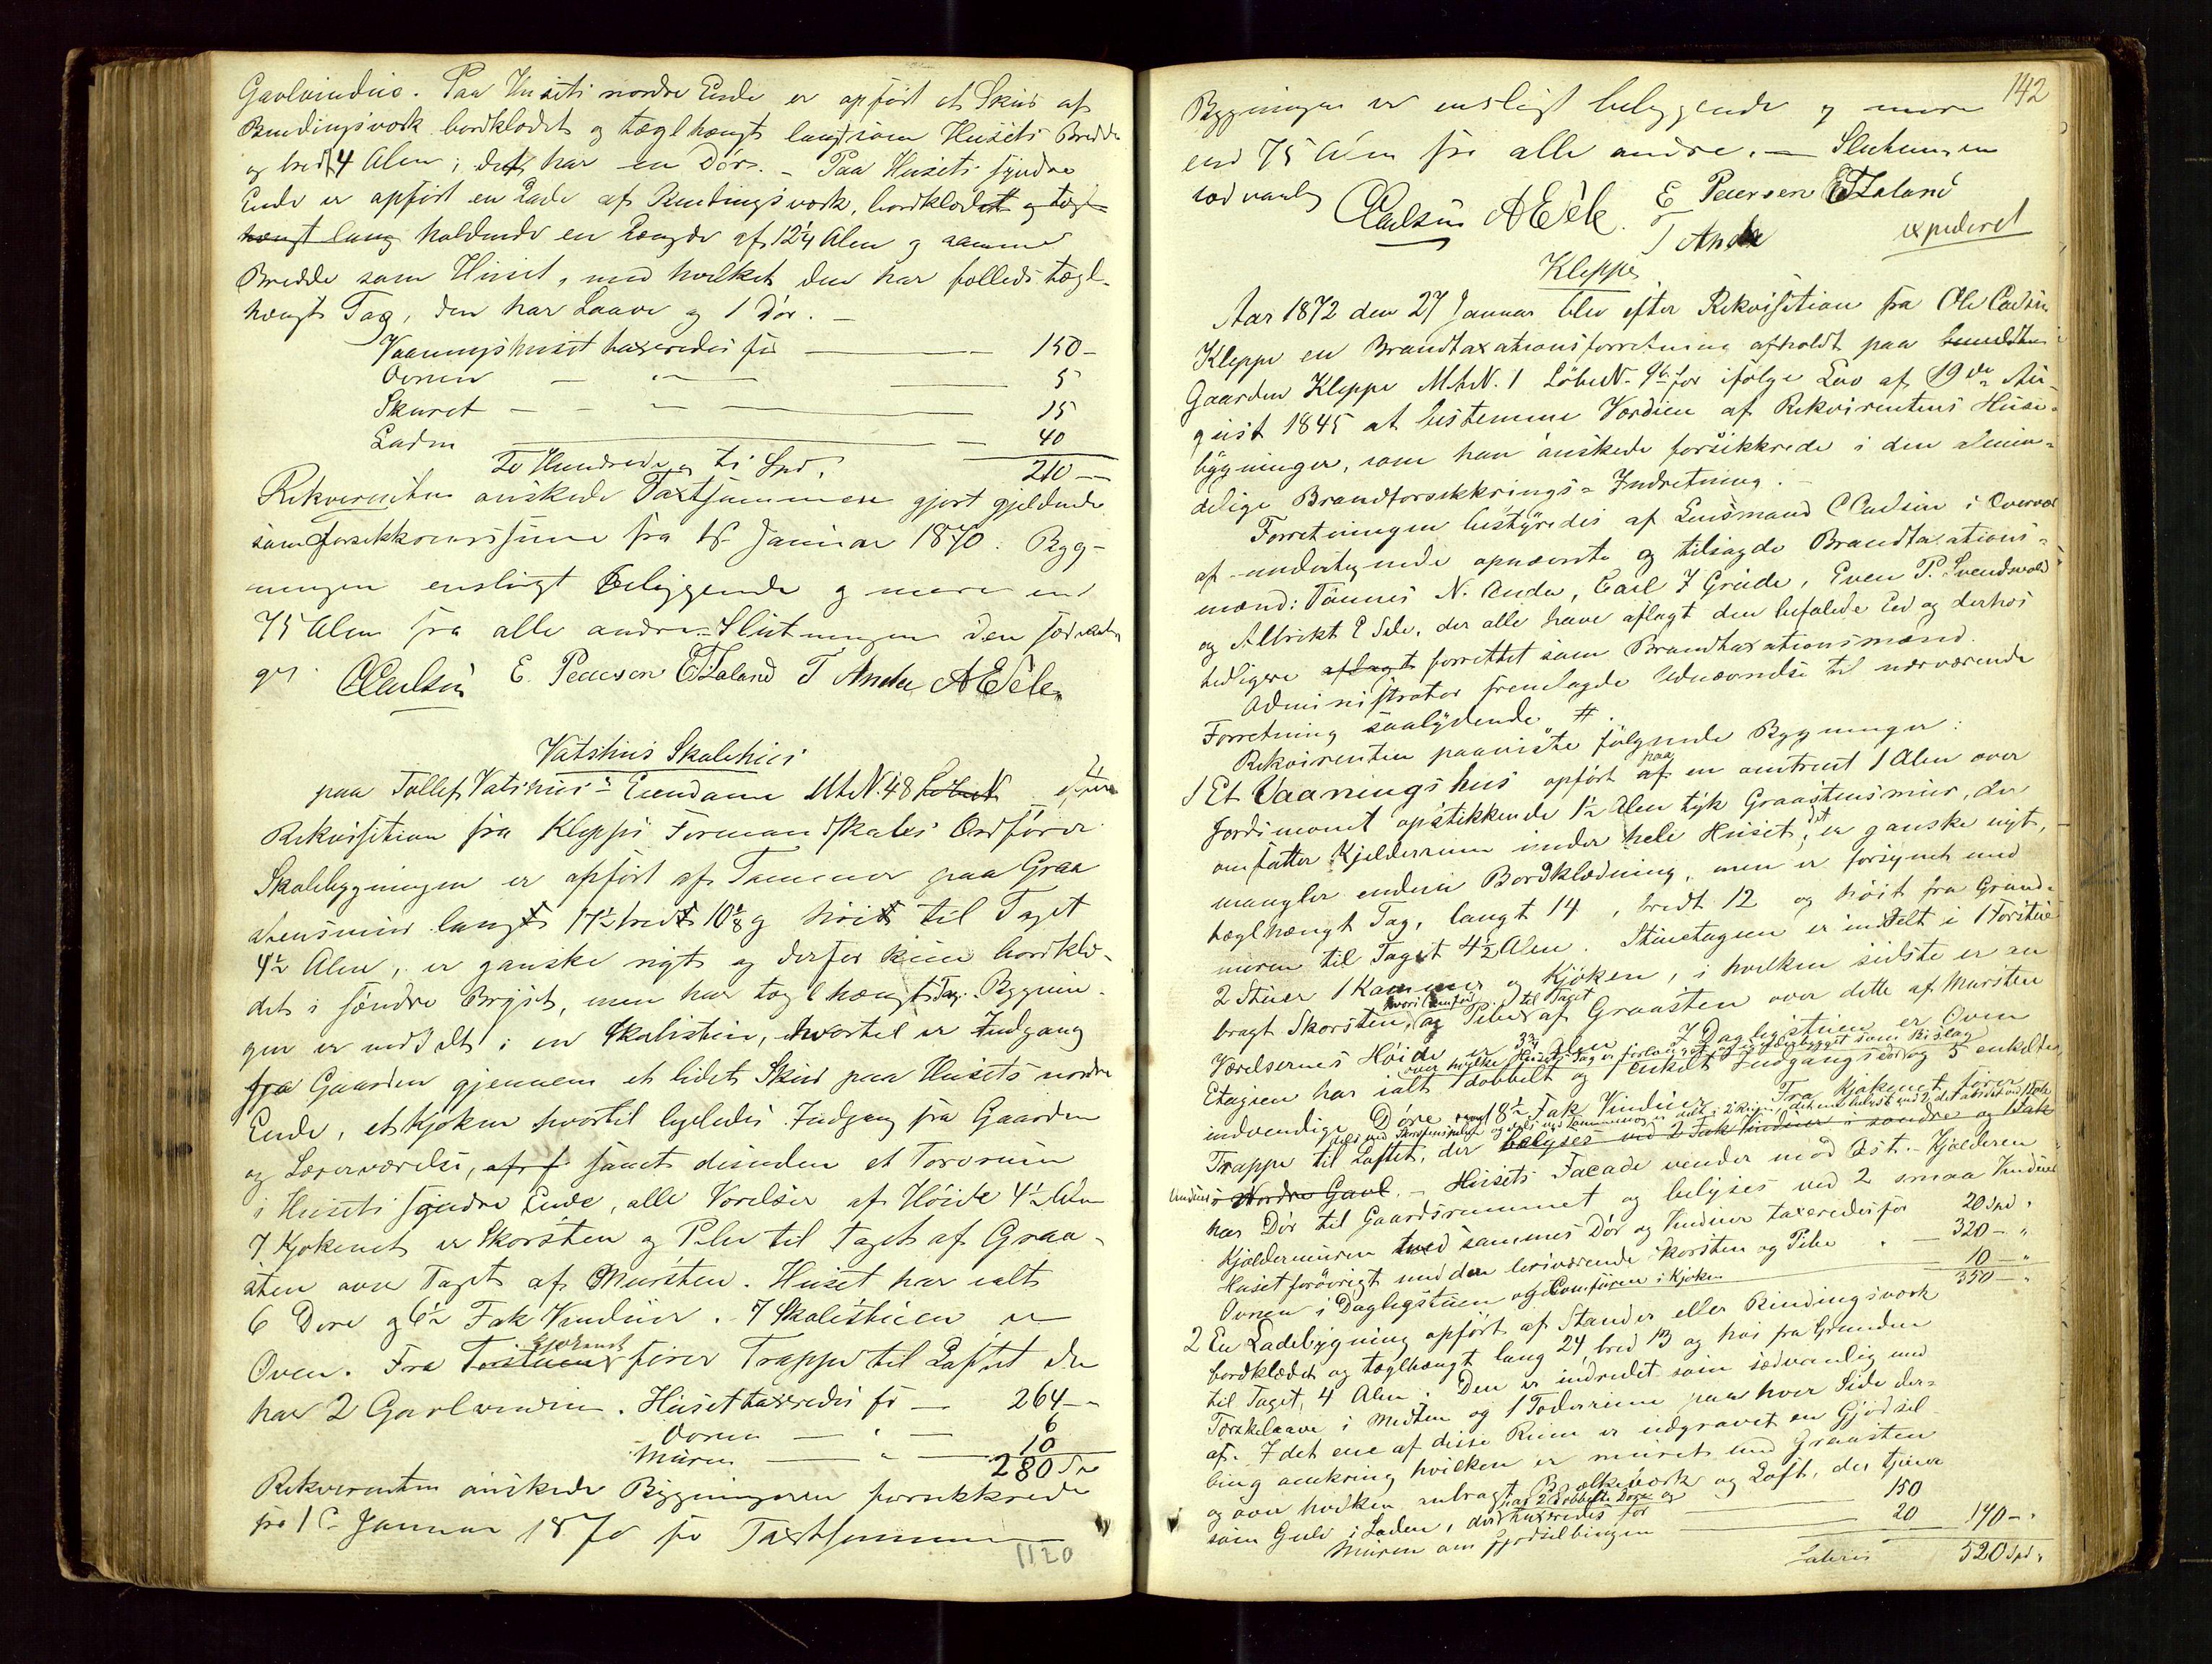 Gavlvindue. Paa Husets nordre Ende er opført et Skur af
Bindingsværk bordklædet og tæglhængt langt som Husets Bredde
og bredt 4 Alen; det har en Dør. – Paa Husets søndre
Ende er opført en Lade af Bindingsværk, bordklædet og tægl-
hængt lang holdende en Længde af 12¼ Alen og samme
Bredde som Huset, med hvilket den har fælleds tægl-
hængt Tag, den har Laave og 1 Dør. –
Vaaningshuset taxeredes for — 150 –
Ovnen — " — 5
Skuret — " — 15
Laden — 40
To Hundrede og ti Spd. 210 –
Rekvirenten ønskede Taxtsummen gjort gjeldende
som Forsikkringssum fra 1ste Januar 1870. Byg-
ningen ensligt beliggende og mere end
75 Alen fra alle andre. – Slutningen den sædvanli
ge.
CCarlsen E. Pedersen ETZaland T Anda AESele
Vatshus Skolehus
paa Tollef Vatshus's Eiendom Mt.N. 48 LøbeN efter
Rekvisition fra Klepps Formandskabs Ordfører
Skolebygningen er opført af Tømmer paa Graa
stensmur langt 17½ bredt 10⅛ og høit til Taget
4½ Alen, er ganske nyt og derfor kun bordklæ-
det i søndre Bryst, men har tæglhængt Tag. Bygnin-
gen er inddelt i en Skolestue, hvortil er Indgang
fra Gaarden gjennem et lidet Skur paa Husets nordre
Ende, et Kjøken hvortil ligeledes Indgang fra Gaarden
og Lærerværelse, af f samt desuden et Torvrum
i Husets søndre Ende, alle Værelser af Høide 4½ Alen
I Kjøkenet er Skorsten og Pibe til Taget af Graa-
sten over Taget af Mursten. Huset har ialt
6 Døre og 6½ Fak Vinduer. I Skolestuen er
Oven. Fra Forstuen Kjøkenet fører Trappe til Loftet der
har 2 Gavlvinduer. Huset taxeredes for — 264 –
Ovnen — " — 6
Muren — " — 10
280 Spd
Rekvirenten ønskede Bygningerne forsikkrede
fra 1ste Januar 1870 for Taxtsummen
1120
142
Bygningen er ensligt beliggende og mere
end 75 Alen fra alle andre. — Slutningen
sædvanlig
CCarlsen AESele. E Pedersen ETZaland
T Anda expederet
Kleppe
Aar 1872 den 27 Januar blev efter Rekvisition fra Ole Carlsen
Kleppe en Brandtaxationsforretning afholdt paa
Gaarden Kleppe Mt.N. 1 LøbeN. 9b for ifølge Lov af 19de Au-
gust 1845 at bestemme Værdien af Rekvirentens Huse-
bygninger, som han ønskede forsikkrede i den almin-
delige Brandforsikkrings-Indretning. –
Forretningen bestyredes af Lensmand CCarlsen i Overvær
af undertegnede opnævnte og tilsagde Brandtaxations-
mænd: Tønnes N. Anda, Carl J Grude, Even P. Svendsvold
og Albrikt E Sele, der alle have aflagt den befalede Ed og derhos
tidligere aflagt forrettet som Brandtaxationsmænd.
Administrator fremlagde Udnævnelse til nærværende
Forretning saalydende #.
Rekvirenten paaviste følgende Bygninger:
1 Et Vaaningshus opført af paa en omtrent 1 Alen over
Jordsmonet opstikkende 1½ Alen tyk Graastensmur, der
omfatter Kjelderrum under hele Huset; det er ganske nyt,
mangler endnu Bordklædning, men er forsynet med
tæglhængt Tag, langt 14, bredt 12 og høit fra Grund-
muren til Taget 4½ Alen. Stueetagen er inddelt i 1 Forstue
2 Stuer 1 Kammer og Kjøken, i hvilken sidste er an
bragt Skorsten, hvori Comfur og Pibe til Taget af Graasten over dette af Mursten
Værelsernes Høide er 3¾ Alen. I Dagligstuen er Oven
Etagien har ialt 1 dobbelt og 1 enkelt Indgangsdør over hvilke Husets Tag er forlænget og igjenbygget som Bislag og 5 enkelte
indvendige Døre samt 8½ Fak Vinduer. Fra Kjøkenet fører
Trappe til Loftet, der belyses ved 2 Fak Vinduer i søndre og 1 Fak
Vindue i Nordre Gavl. – Husets Facade vender mod Øst. – Kjelderen
har Dør til Gaardsrummet og belyses ved 2 smaa Vinduer
Kjeldermuren med sammes Dør og Vinduer taxeredes for 20 Spd.
Huset forøvrigt med den beværende Skorsten og Pibe " — 320 – "
Ovnen i Dagligstuen og Comfuren i Kjøken — 10 – "
350 – "
2 En Ladebygning opført af Stander eller Bindingsværk
bordklædt og tæglhængt lang 24, bred 13 og høi fra Grunden
til Taget, 4 Alen. Den er indredet som sædvanlig med
Tærskelaave i Midten og 1 Foderrum paa hver Side der-
af. I det ene af disse Rum er udgravet en Gjødsel-
bing omkring hvilken er muret med Graasten
og over hvilken anbragt Bjelkeværk og Loft, der tjener
som Gulv i Laden, den har 2 dobbelte Døre og taxeredes for — 150
Muren om Gjødselbingen — 20 170 – "
Lateris 520 Spd.